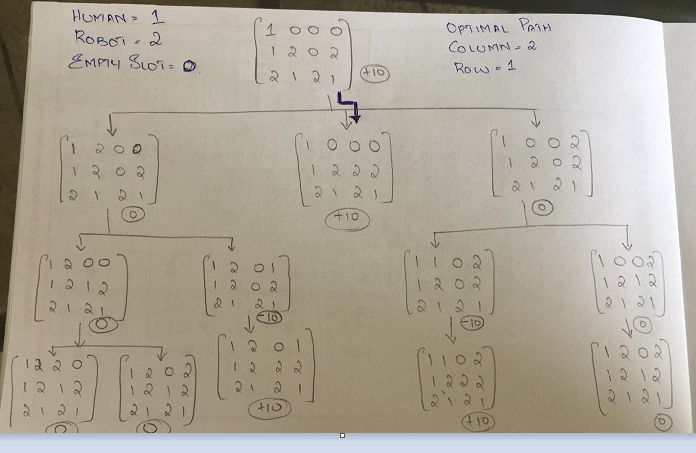 HUMAN = 1
ROBOT = 2
EMPTY SLOT = 0
OPTIMAL PATH
COLUMN = 2
ROW = 1
1 0 0 0
1 2 0 2
2 1 2 1
+10
1 2 0 0
1 2 0 2
2 1 2 1
0
1 0 0 0
1 2 2 2
2 1 2 1
+10
1 0 0 2
1 2 0 2
2 1 2 1
0
1 2 0 0
1 2 1 2
2 1 2 1
0
1 2 0 1
1 2 0 2
2 1 2 1
-10
1 1 0 2
1 2 0 2
2 1 2 1
-10
1 0 0 2
1 2 1 2
2 1 2 1
0
1 2 2 0
1 2 1 2
2 1 2 1
0
1 2 0 2
1 2 1 2
2 1 2 1
0
1 2 0 1
1 2 2 2
2 1 2 1
+10
1 1 0 2
1 2 2 2
2 1 2 1
+10
1 2 0 2
1 2 1 2
2 1 2 1
0